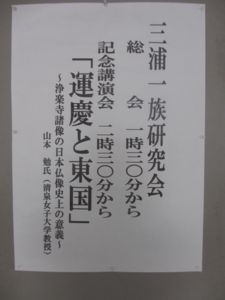 三浦一族研究会
総会 一時三〇分から
記念講演会 二時三〇分から
「運慶と東国」
~浄楽寺諸像の日本仏像史上の意義~
山本 勉氏(清泉女子大学教授)